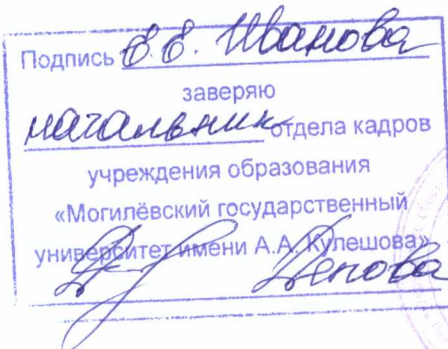 Подпись Е.Е. Иванова
заверяю
начальник отдела кадров
учреждения образования
«Могилёвский государственный
университет имени А.А. Кулешова»